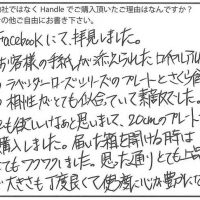 社ではなく Handle でご購入頂いたご理由はなんですか？
の他ご自由にお書き下さい。
Facebookにて、拝見しました。
お客様の手紙が添えられたロイヤルアル
のラベンダーローズシリーズのプレートとさくら食
の相性がとても似合っていて素敵でした。
も欲しいけぁと思いまして、20cmのプレート
購入しました。届いた箱を開ける時は
てもワクワクしました。思った通りとても上品
大きさも丁度良くて使う度に心が豊かにな